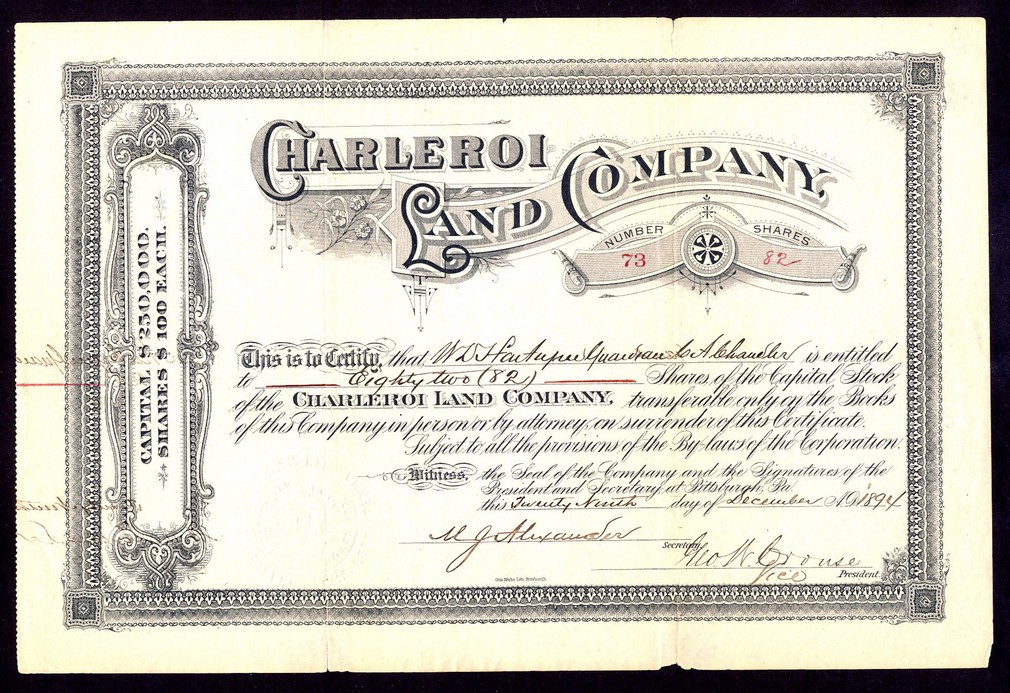 CHARLEROI
LAND COMPANY.
NUMBER SHARES
73 82
CAPITAL $250,000.
SHARES $100 EACH.
This is to Certify, that W D Guardian A Chandler is entitled
to Eighty two (82) Shares of the Capital Stock
of the CHARLEROI LAND COMPANY, transferable only on the Books
of this Company in person or by attorney, on surrender of this Certificate.
Subject to all the provisions of the By-laws of the Corporation.
Witness, the Seal of the Company and the Signatures of the
President and Secretary, at Pittsburgh, Pa.
this Twenty Ninth day of December A.D. 1894
M J Alexander
Secretary
Geo W. Crouse
Vice President.